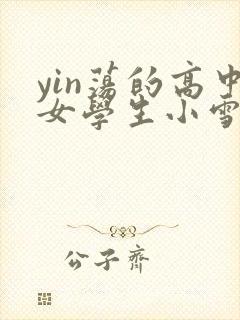 yin蕩的高中
女學生小雪
公子齊